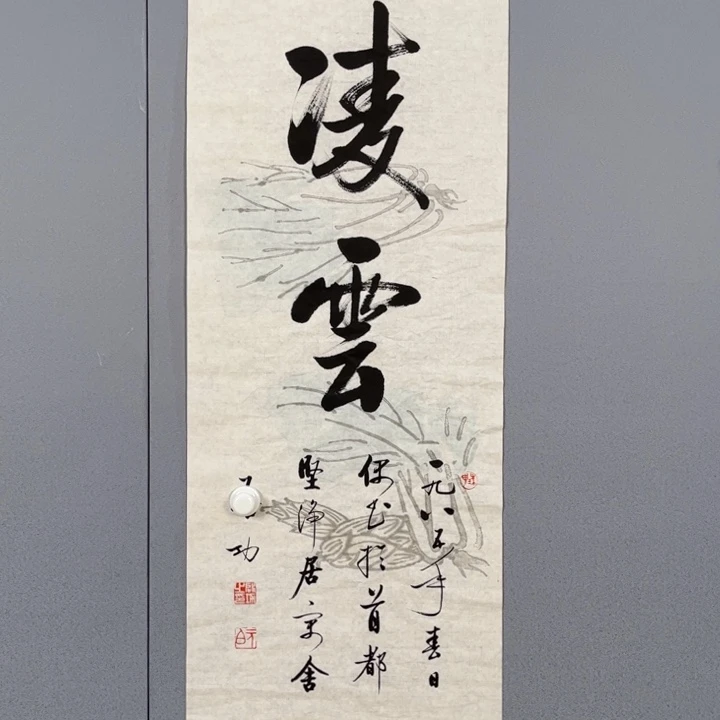 凌雲
一九八五年春日
偶书於首都
坚净居寓舍
功